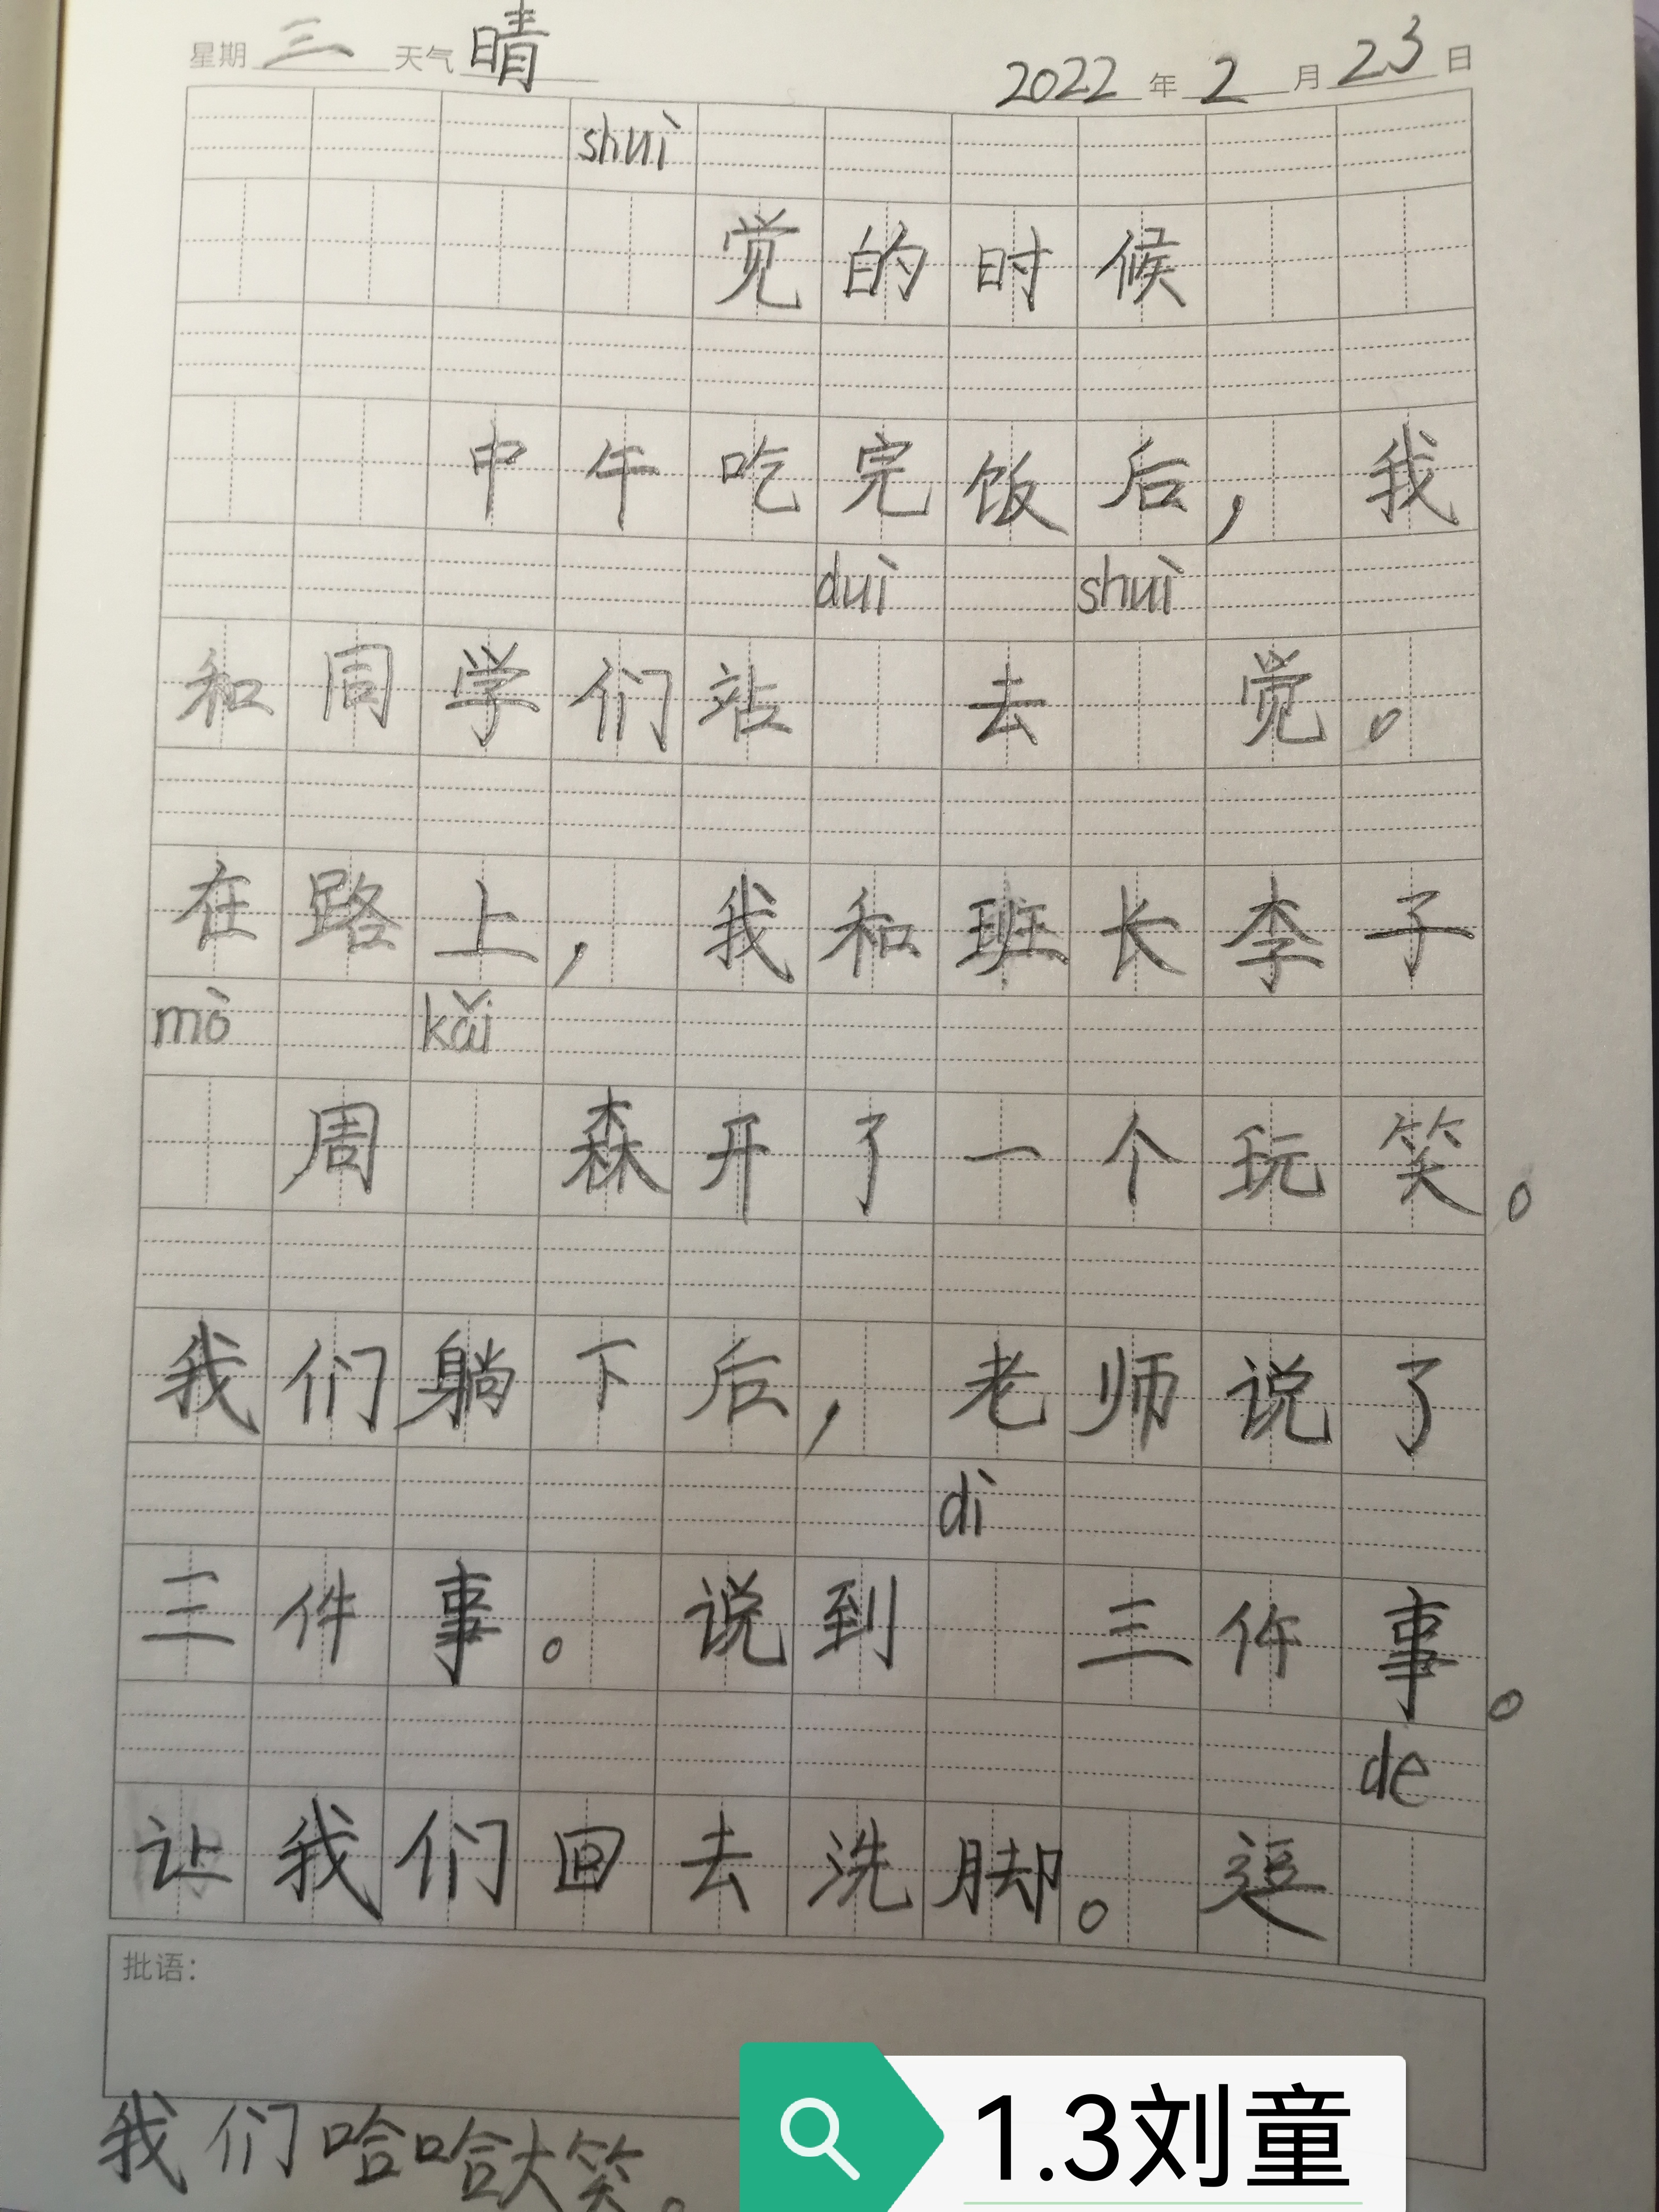 星期 三 天气 晴 2022 年 2 月 23 日
shuì
觉的时候
中午吃完饭后，我
duì shuì
和周学们站 去 觉。
在路上，我和班长李子
mò kǎi
周 森开了一个玩笑。
我们躺下后，老师说了
dì
三件事。说到 三件事。
de
让我们回去洗脚。逗
批语：
我们哈哈大笑。
1.3刘童